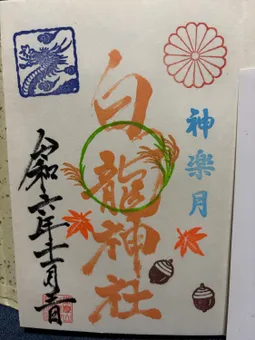 神楽月
白龍神社
令和六年十一月吉日